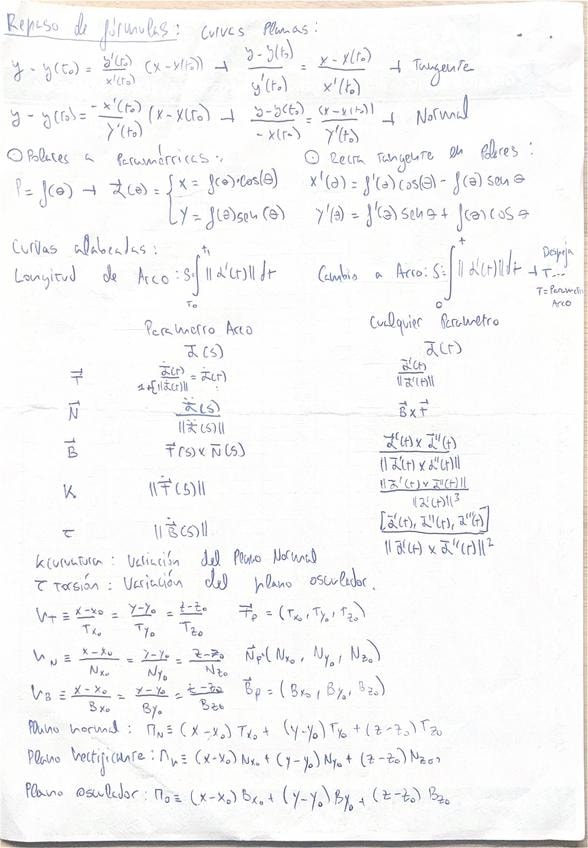 Repaso de fórmulas: Curvas Planas:
y - y(t₀) = y'(t₀)/x'(t₀) (x - x(t₀)) → (y - y(t₀))/y'(t₀) = (x - x(t₀))/x'(t₀) → Tangente
y - y(t₀) = -x'(t₀)/y'(t₀) (x - x(t₀)) → (y - y(t₀))/-x'(t₀) = (x - x(t₀))/y'(t₀) → Normal
○ Polares a Paramétricas: ⊙ Recta Tangente en Polares:
P = f(θ) → α⃗(θ) = { x = f(θ)·cos(θ) x'(θ) = f'(θ) cos(θ) - f(θ) sen θ
y = f(θ) sen(θ) y'(θ) = f'(θ) sen θ + f(θ) cos θ
Curvas alabeadas:
Longitud de Arco: S = ∫_{t₀}^{t₁} ||α'(t)|| dt Cambio a Arco: S = ∫_0^t ||α'(t)|| dt → Despeja T...
T = Parametro Arco
Parametro Arco Cualquier Parametro
α⃗(s) α⃗(t)
T⃗ α̇(t)/||α̇(t)|| = α̇(t) α⃗'(t)/||α⃗'(t)||
N⃗ α̈(s)/||α̈(s)|| B⃗ x T⃗
B⃗ T⃗(s) x N⃗(s) α⃗'(t) x α⃗''(t)/||α⃗'(t) x α⃗''(t)||
K ||Ṫ(s)|| ||α⃗'(t) x α⃗''(t)||/||α'(t)||³
τ ||Ḃ(s)|| [α⃗'(t), α⃗''(t), α⃗'''(t)]/||α⃗'(t) x α⃗''(t)||²
K curvatura: Variación del Plano Normal
τ Torsión: Variación del plano osculador.
V_T ≡ (x-x₀)/Tx₀ = (y-y₀)/Ty₀ = (z-z₀)/Tz₀ T⃗p = (Tx₀, Ty₀, Tz₀)
V_N ≡ (x-x₀)/Nx₀ = (y-y₀)/Ny₀ = (z-z₀)/Nz₀ N⃗p (Nx₀, Ny₀, Nz₀)
V_B ≡ (x-x₀)/Bx₀ = (y-y₀)/By₀ = (z-z₀)/Bz₀ B⃗p = (Bx₀, By₀, Bz₀)
Plano normal: Π_N ≡ (x-x₀) Tx₀ + (y-y₀) Ty₀ + (z-z₀) Tz₀
Plano Rectificante: Π_R ≡ (x-x₀) Nx₀ + (y-y₀) Ny₀ + (z-z₀) Nz₀
Plano osculador: Π_O ≡ (x-x₀) Bx₀ + (y-y₀) By₀ + (z-z₀) Bz₀